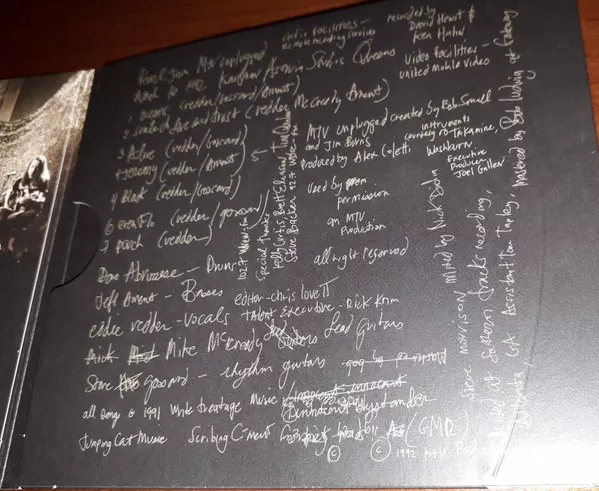 MTV unplugged
March 16 1992 Kaufman / Astoria Studios Queens
1 oceans (vedder/Gossard/Ament)
2 state of love and trust (vedder McCready Ament)
3 Alive (vedder/Gossard)
4 Jeremy (vedder/Ament)
5 Black (vedder/Gossard)
6 even Flo (vedder/gossard)
7 porch (vedder)
Dave Abruzzese - Drums
Jeff Ament - Basses
eddie vedder - vocals
Mike McCready Lead Guitars
Stone gossard - rhythm guitars
all songs © 1991 Write treatage Music
innocent bystander
Jumping Cat Music
Scribing C-Ment
(GMR)
© © 1992 MTV
audio facilities -
remote recording services
recorded by
David Hewitt &
Ken Hahn
Video facilities -
united mobile video
MTV unplugged created by Bob Small
and Jim Burns
produced by Alex Coletti
instruments
courtesy of Takamine,
Washburn
Executive
Producer
Joel Gallen
Used by
permission
an MTV
Production
all right reserved
editor - chris lovett
Talent Executive - Rick Krim
Special Thanks
Kelly Curtis, Brett Eliason, Tim Quinlan
Steve Backer 92.7 WDRE-FM
102.7 WNEW-FM
mixed by Nick DiDia
at Southern Tracks recording,
Atlanta, GA Assistant Tom Tapley,
mastered by Bob Ludwig at Gateway